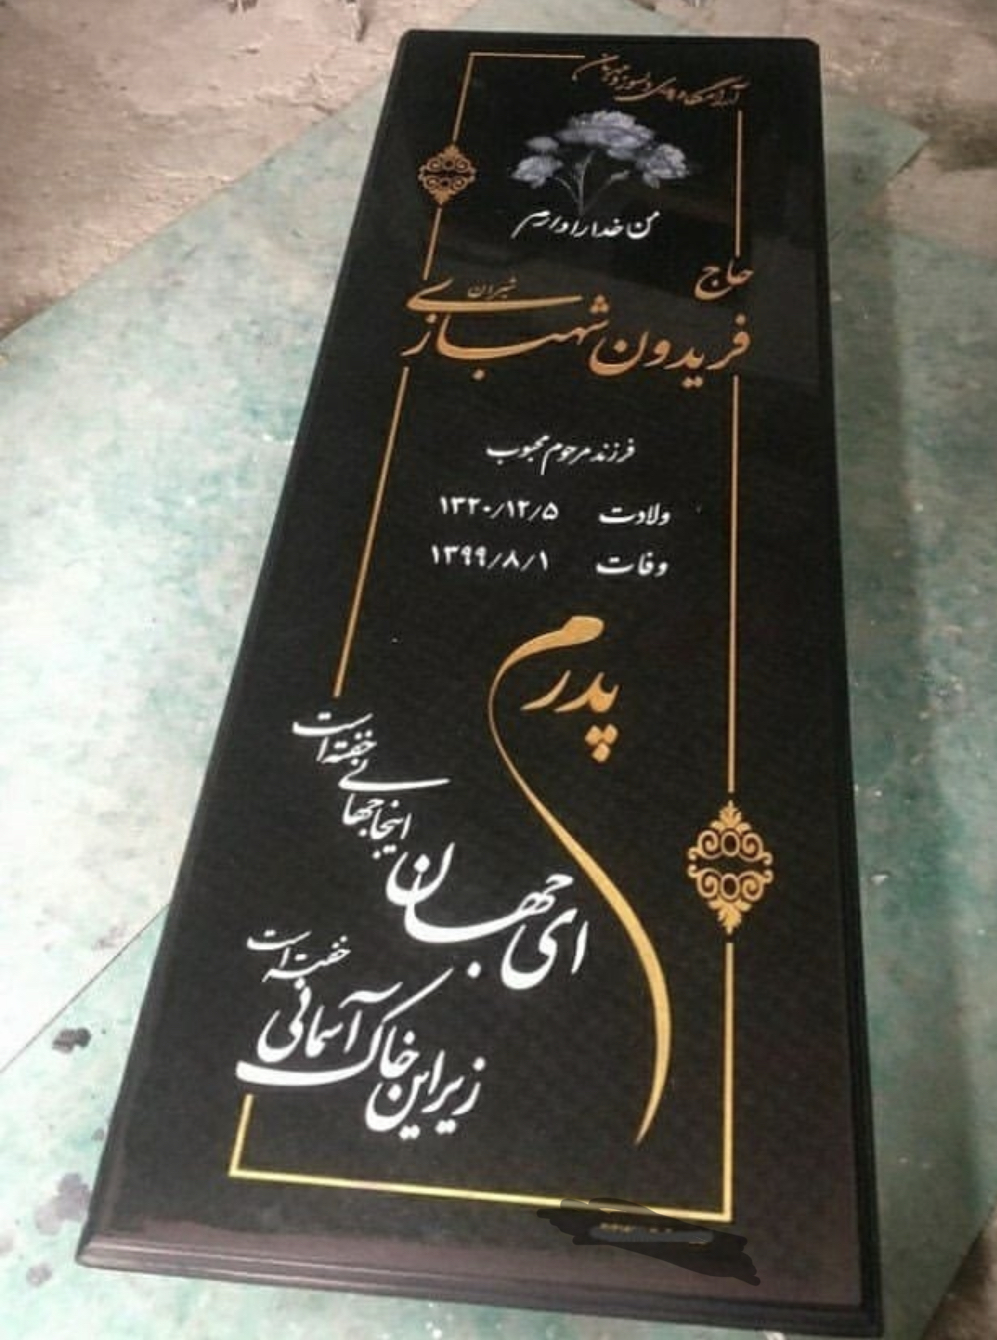 آرامگاه بابای دلسوز و مهربان
من خدا را دارم
حاج
فریدون شهبازی
شیران
فرزند مرحوم محبوب
ولادت ۱۳۲۰/۱۲/۵
وفات ۱۳۹۹/۸/۱
پدرم
ای جهان اینجا جهانی خفته است
زیر این خاک آسمانی خفته است